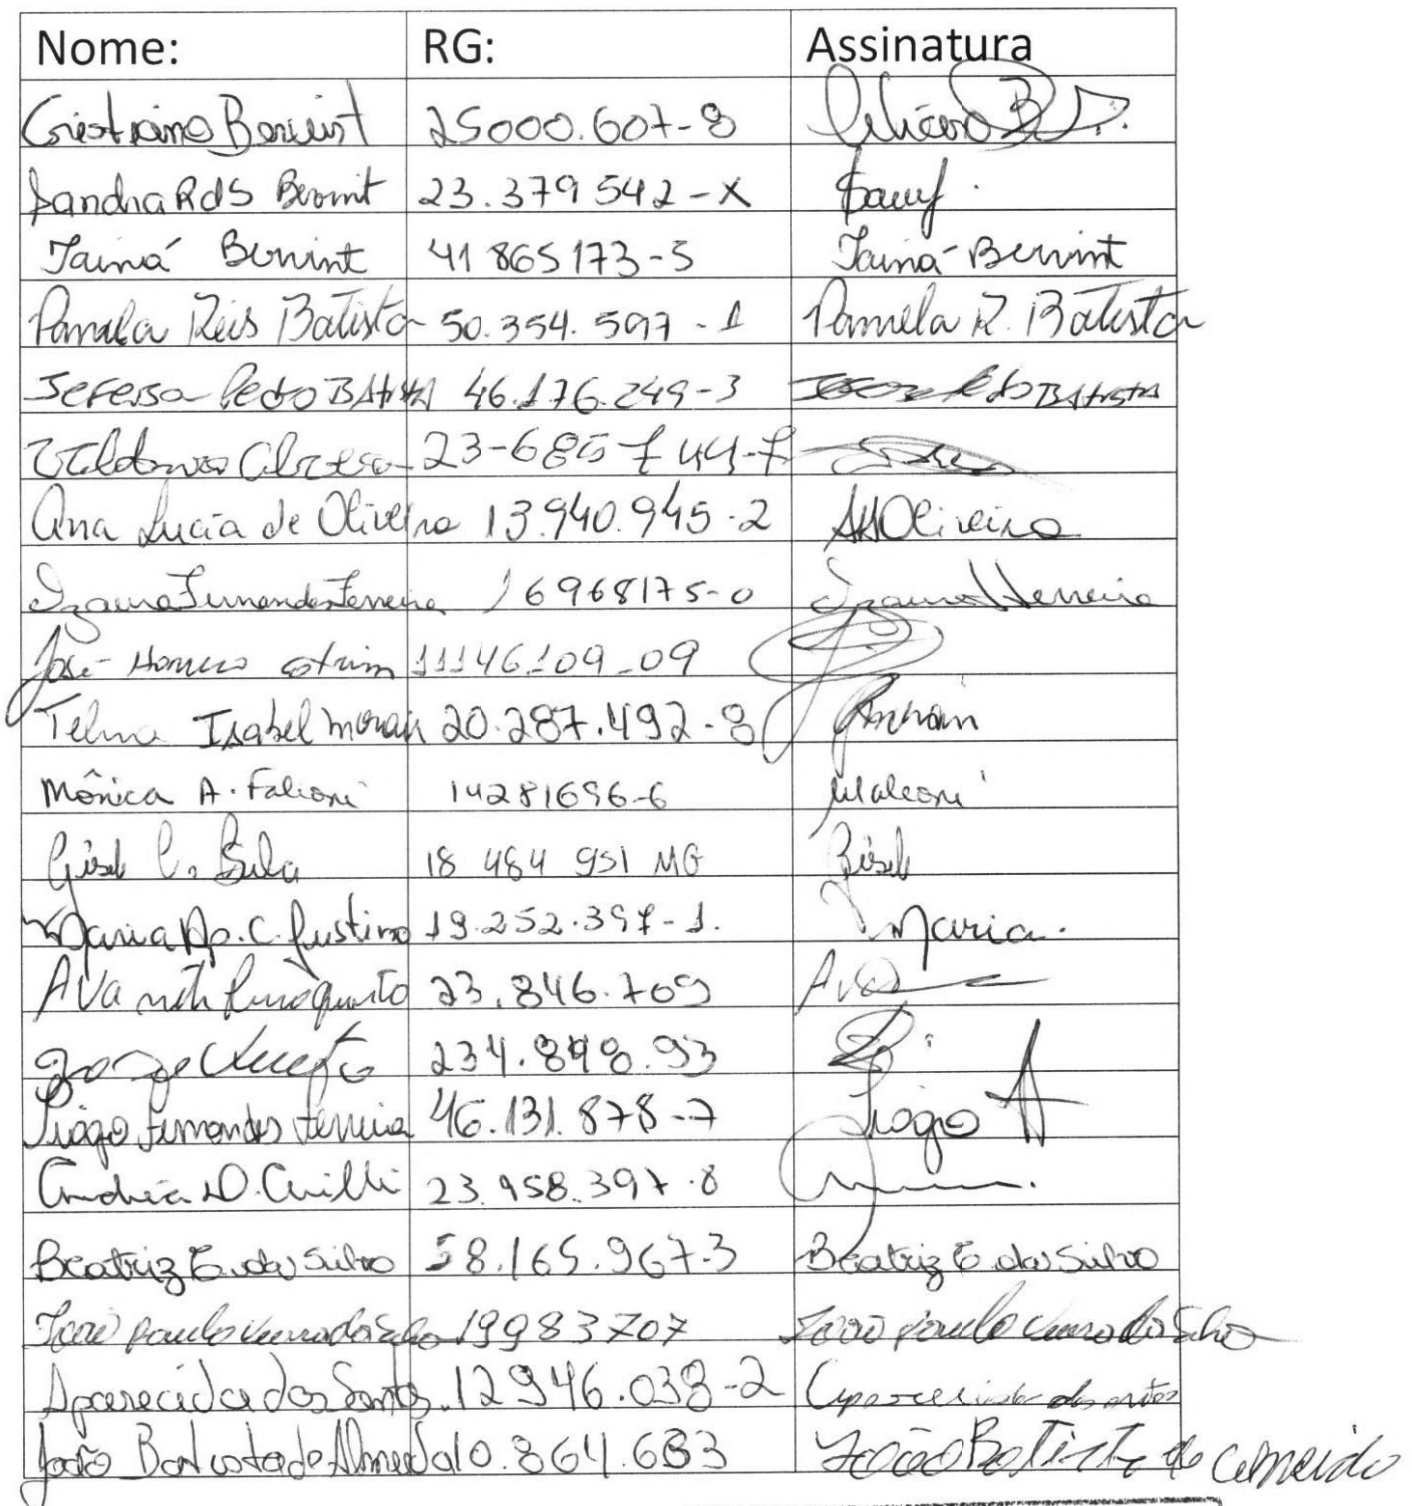 Nome: RG: Assinatura
Cristiano Benvint 25000.607-8
Sandra RdS Benvint 23.379542-X
Tainá Benvint 41 865 173-5 Tainá Benvint
Pamela Reis Batista 50.354.597-1 Pamela R. Batista
Pedro BAtistA 46.176.249-3 Pedro BAtistA
23-685744-7
Ana Lucia de Oliveira 13.940.945-2 Oliveira
Izaura Fernandes Ferreira 16968175-0 Izaura Ferreira
José Homero 11146109-09
Telma Isabel morais 20.287.492-8
Mônica A. Falioni 14281696-6
Gisel C. Silva 18 484 951 MG Gisel
Maria Ap. C. Justino 19.252.397-1. Maria.
23.846.709
Jorge 234.848.93
Tiago Fernandes Ferreira 46.131.878-7 Tiago
Andréa D. 23.958.397-8
Beatriz E. da Silva 58.165.967-3 Beatriz E. da Silva
João paulo da Silva 19983707 João paulo da Silva
Aparecida dos Santos 12946.038-2 Aparecida dos
João Batista de Almeida 10.864.683 João Batista de Almeida